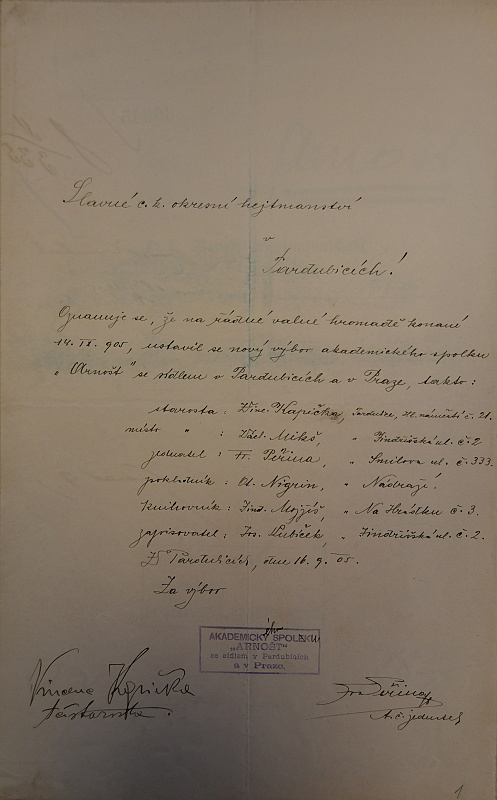 Slavné c. k. okresní hejtmanství
v
Pardubicích!
Oznamuje se, že na řádné valné hromadě konané
14. IX. 905, ustavil se nový výbor akademického spolku
„Arnošt" se sídlem v Pardubicích a v Praze, takto:
starosta: Vinc. Kapička, Pardubice, Hl. náměstí č. 21.
místo „ : Václ. Mikš, „ Jindřišská ul. č. 2
jednatel: Fr. Peřina, „ Smilova ul. č. 333.
pokladník: Nigrin, „ Nádraží.
knihovník: Jind. Mojžíš, „ Na Hrádku č. 3.
zapisovatel: Jos. Lubíček, „ Jindřišská ul. č. 2.
V Pardubicích, dne 16. 9. 05.
Za výbor
AKADEMICKÝ SPOLEK
„ARNOŠT"
se sídlem v Pardubicích
a v Praze.
Vincenc Kapička
starosta.
Fra Peřina
t. č. jednatel
1